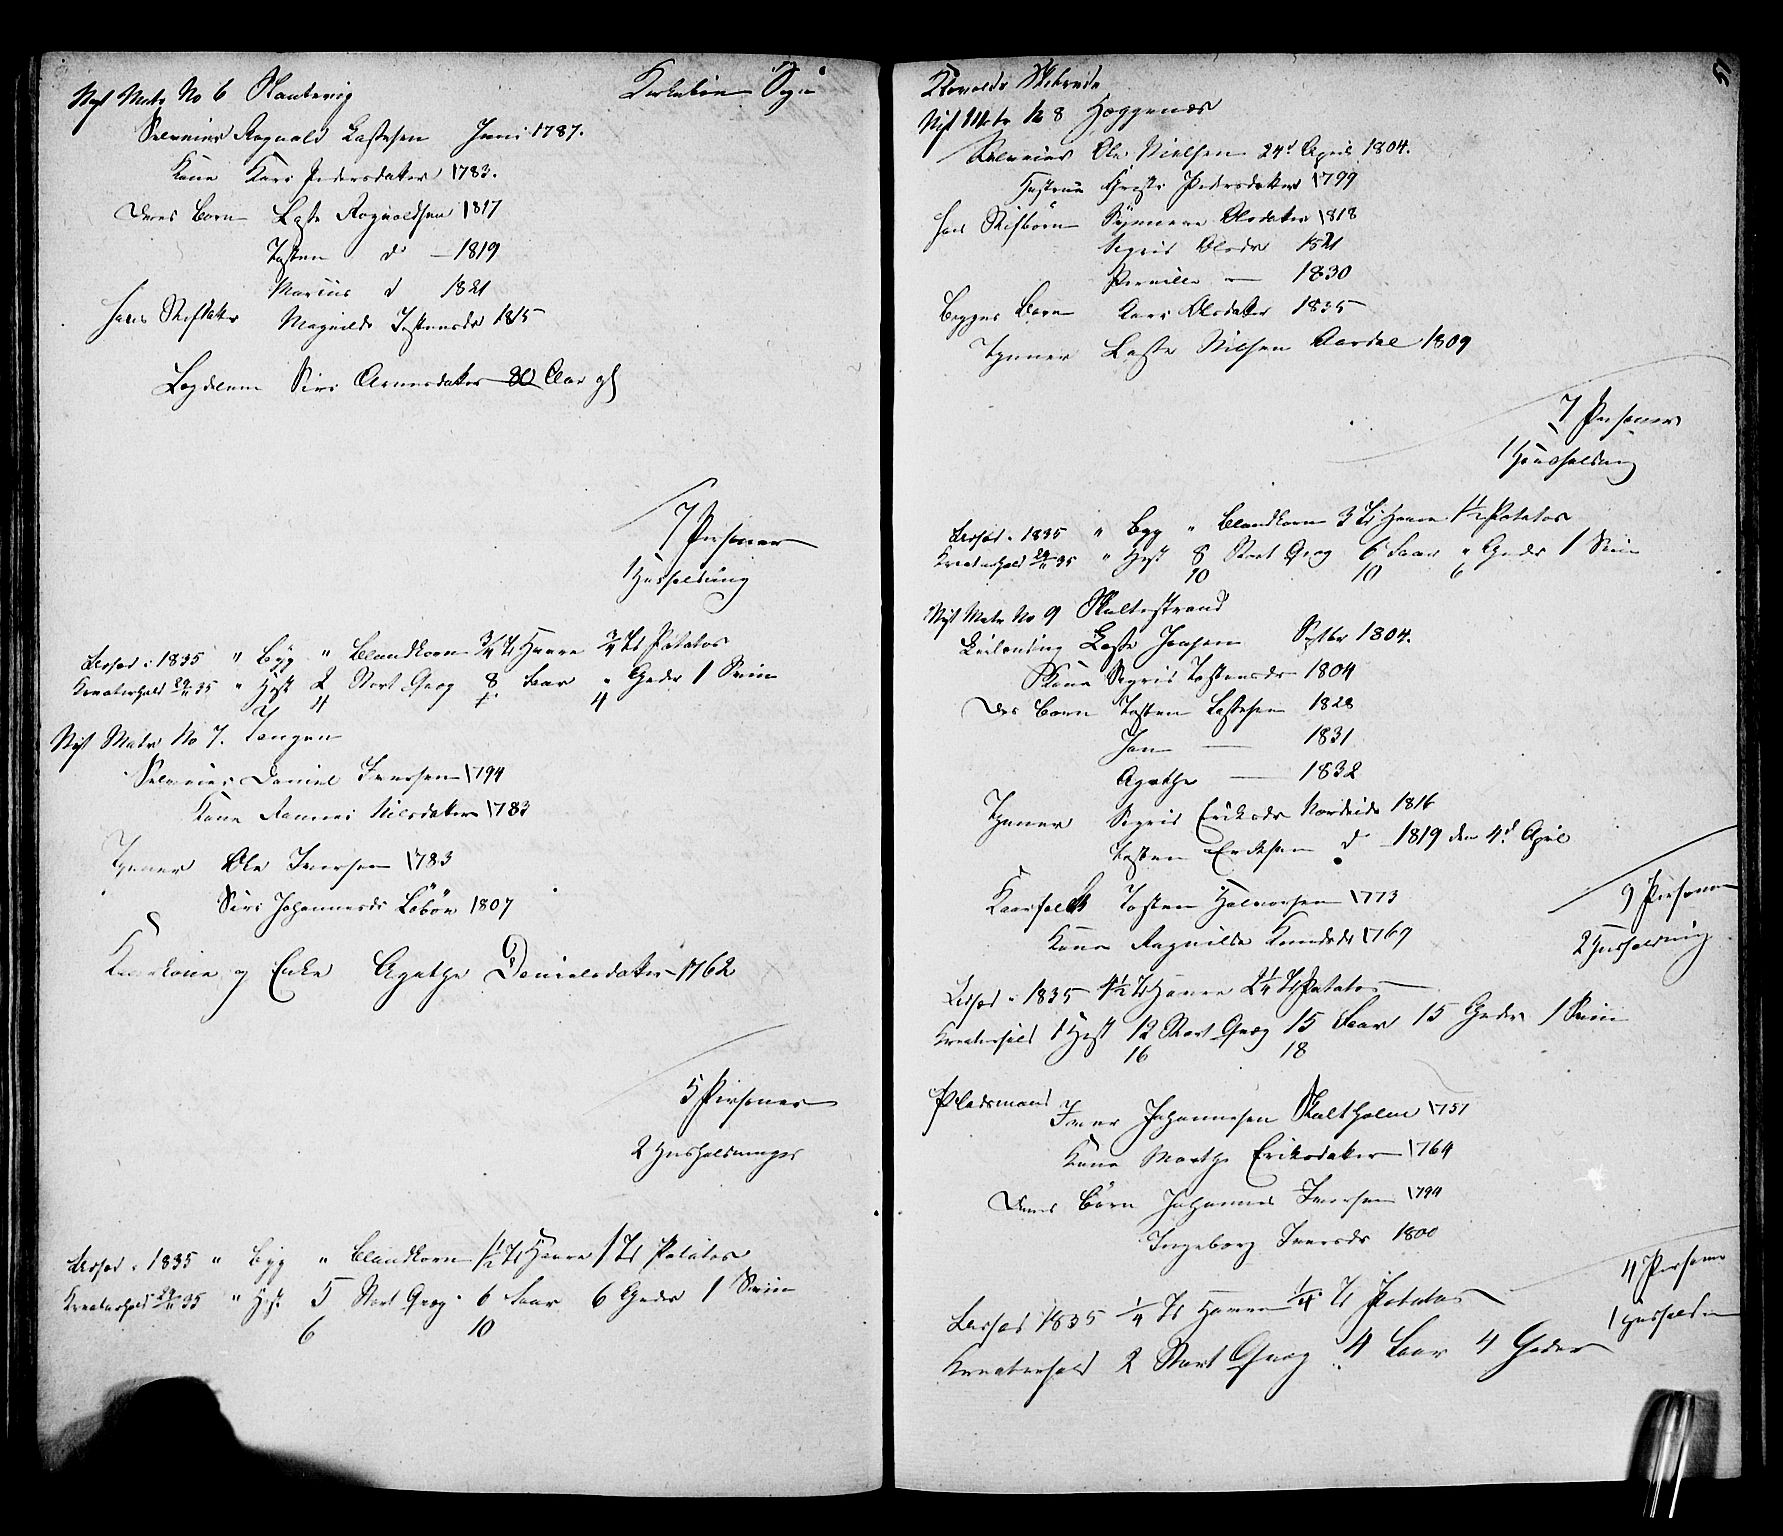 Nyt Matr No 6 Slautevig Kirkebøe Sogn
Selveier Rognald Lassesen Juni 1787.
Kone Kari Pedersdatter 1783.
Deres Børn Lasse Rognaldsen 1817
Tosten do — 1819
Marius d 1821
Hans Stifdatter Magnilde Tostensdr 1815
Lægdslem Siri Arnesdatter 80 Aar gl
7 Personer
1 Huusholdning
Udsæd i 1835 " Byg " Blandkorn 3/4 Td Havre 3/4 Td Potatos
Kreaturhold 29/11 35 " Hest 2 Stort Qvæg 8 Faar " Geder 1 Sviin
4 4
Nyt Matr No 7. Tangen
Selveier Daniel Iversen 1794
Kone Rannei Nilsdatter 1783
Tyener Ole Iversen 1783
Siri Johannesdr Løbøe 1807
Kaarkone og Enke Agathe Danielsdatter 1762
5 Personer
2 Huusholdninger
Udsæd i 1835 " Byg " Blandkorn 1 1/2 Td Havre 1 Td Potatos
Kreaturhold 29/11 35 " Hest 5 Stort Qvæg 6 Faar 6 Geder 1 Sviin
6 10
51
Klævolds Skibrede
Nyt Matr No 8 Hæggenæs
Selveier Ole Nielsen 24d April 1804.
Hustrue Christi Pedersdatter 1799
Hans Stifbørn Synneve Olsdatter 1818
Sigrid Olsdr 1821
Pernille — 1830
Begges Barn Kari Olsdatter 1835
Tyener Lasse Nilsen Aardal 1809
7 Personer
1 Huusholdning
Udsæd i 1835 " Byg " Blandkorn 3 Td Havre 1 1/2 Potatos
Kreaturhold 29/11 35 " Hest 8 Stort Qvæg 6 Faar " Geder 1 Sviin
10 10 6
Nyt Matr No 9 Skaltestrand
Leilending Lasse Jonsen Septbr 1804.
Kone Sigrid Tostensdr 1804
Des Børn Tosten Lassesen 1828
Jon — 1831
Agathe — 1832
Tyener Sigrid Eriksdr Nordeide 1816
Tosten Eriksen d — 1819 den 4d April
Kaarfolk Tosten Halvorsen 1773
Kone Ragnilde Knudsdr 1769
9 Personer
2 Huusholdning
Udsæd i 1835 4 1/2 Td Havre 2 1/4 Td Potatos
Kreaturhold 1 Hest 12 Stort Qvæg 15 Faar 15 Geder 1 Sviin
16 18
Pladsmand Iver Johannesen Skaltholm 1757
Kone Marthe Eriksdatter 1764
Deres Børn Johannes Iversen 1794
Ingeborg Iversdr 1800
4 Personer
1 Huusholdn
Udsæd 1835 1/4 Td Havre 1/4 Td Potatos
Kreaturhold 2 Stort Qvæg 4 Faar 4 Geder